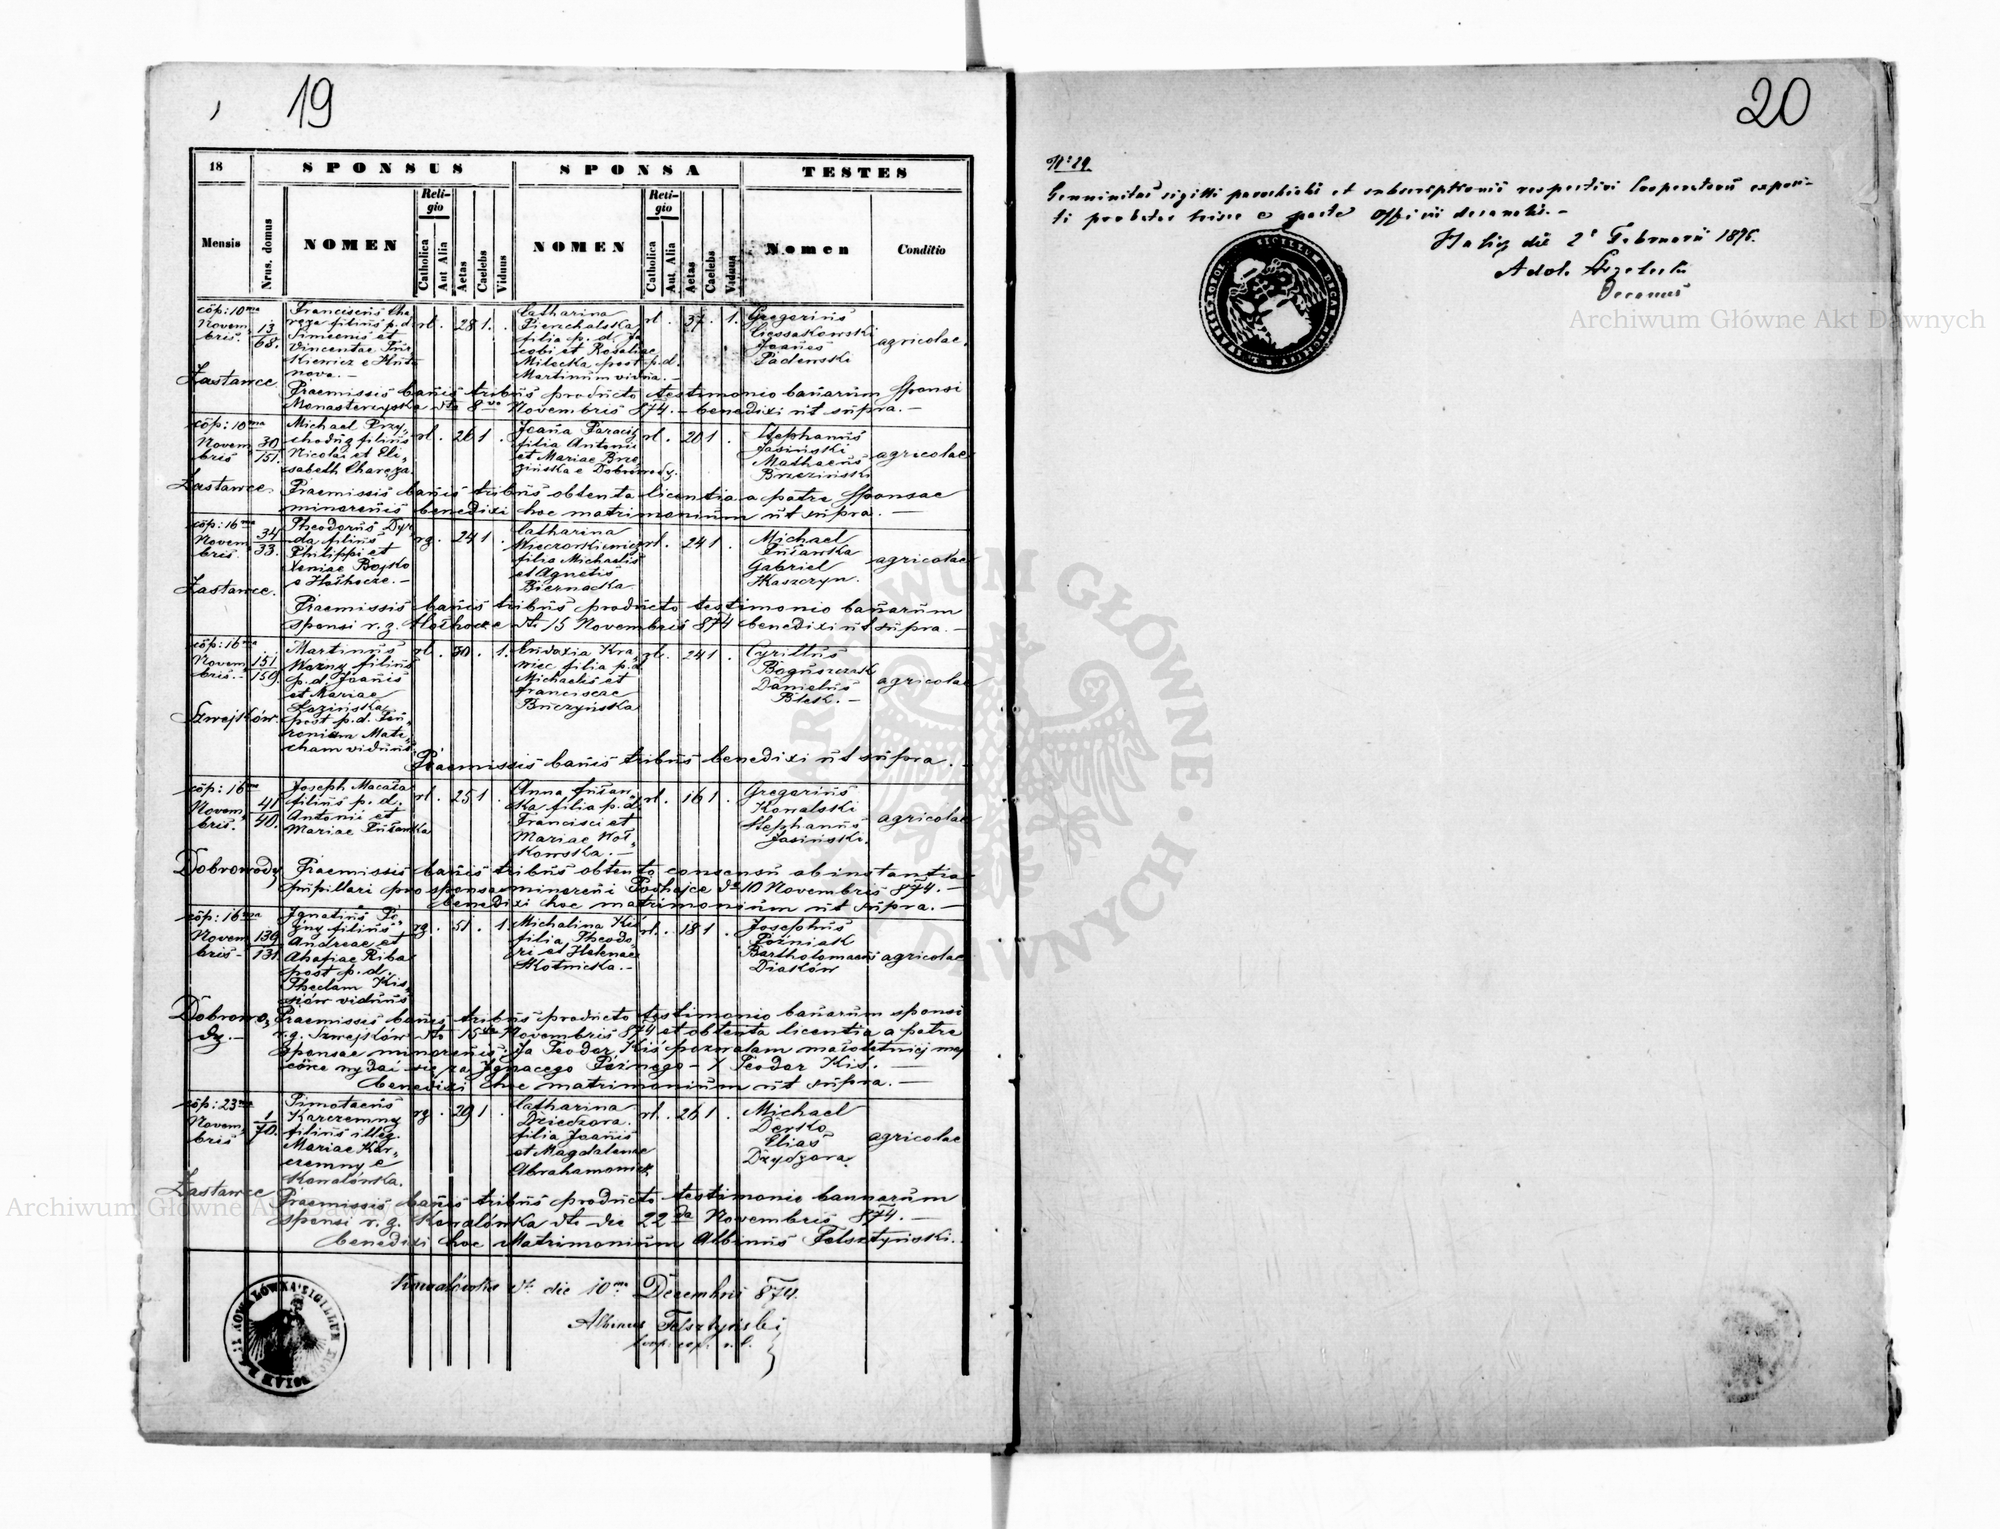 19
18
SPONSUS
SPONSA
TESTES
Mensis
Nrus. domus
NOMEN
Religio
Catholica
Aut Alia
Aetas
Caelebs
Viduus
NOMEN
Religio
Catholica
Aut Alia
Aetas
Caelebs
Vidua
Nomen
Conditio
cop: 10ma
Novem
bris.
13
68.
Franciscus Cha
reza filius p. d.
Simeonis et
Vincentae
Kiewicz e Huta
nova. —
rl. . 28 1. .
Catharina
Pienchalska
filia p. d. Ja
cobi et Rosaliae
Milecka post p. d.
Martinum vidua. —
rl . 37 . 1.
Gregorius
Ciessakowski
Joanes
Padenski
agricolae.
Zastawce.
Praemissis banis tribus producto testimonio banarum sponsi
Monasterzyska dto 8va Novembris 874. — benedixi ut supra. —
cop: 10ma
Novem
bris
30
151.
Michael Przy,
chodny filius
Nicolai et Eli,
sabeth Chareza.
rl. . 26 1. .
Joana Paraciy
filia Antonii
et Mariae Brze
zinska e Dobrowody.
rl . 20 1 .
Stephanus
Jasinski
Mathaeus
Brzezinski
agricolae
Zastawce.
Praemissis banis tribus obtenta licentia a patre sponsae
minorenis benedixi hoc matrimonium ut supra. —
cop: 16ma
Novem
bris.
34
33.
Theodorus Dyr
da filius
Philippi et
Xeniae Bojko
e Hothocze. —
rg . 24 1 .
Catharina
Wieczorkiewicz
filia Michaelis
et Agnetis
Biernacka
rl . 24 1 .
Michael
Gabriel
Haszczyn.
agricolae
Zastawce.
Praemissis banis tribus producto testimonio banarum
sponsi r. g. Hothocze dto 15 Novembris 874 benedixi ut supra. —
cop: 16ma
Novem
bris. —
151
159.
Martinus
Wazny filius
p. d. Joanis
et Mariae
Lazinska
post p. d.
Mate,
cham viduus
rl . 30 . 1.
Eudoxia Kra
wiec filia p. d.
Michaelis et
Franciscae
Buczynska
gl. . 24 1 .
Cyrillus
Boguszczak
Danielus
Bilek. —
agricolae
Szwejkow.
Praemissis banis tribus benedixi ut supra. —
cop: 16ma
Novem,
bris.
41
40.
Joseph Macala
filius p. d.
Antonii et
Mariae
rl . 25 1 .
Anna
ka filia p. d.
Francisci et
Mariae Wol,
kowska. —
rl . 16 1 .
Gregorius
Kowalski
Stephanus
Jasinski.
agricolae
Dobrowody
Praemissis banis tribus obtento consensu ab instantia
pupillari pro sponsae minoreni Podhajce dto 10 Novembris 874. —
benedixi hoc matrimonium ut supra. —
cop: 16ma
Novem
bris —
139
131
Ignatius Po,
zny filius
Andreae et
Ahafiae Riba
post p. d.
Theclam Kis,
siow viduus
rg . 51 . 1.
Michalina Kis
filia Theodo
ri et Helenae
Kotnicka. —
rl. . 18 1 .
Josephus
Pozniak
Bartholomaeus
Diakow
agricolae
Dobrowo,
dy. —
Praemissis banis tribus producto testimonio banarum sponsi
r. g. Szwejkow dto 15ta Novembris 874 et obtenta licentia a patre
sponsae minorenis: Ja Teodor Kis pozwalam maloletniej mej
corce wydac sie za Ignacego Poznego — X Teodor Kis. —
benedixi hoc matrimonium ut supra. —
cop: 23ma
Novem,
bris
1
70.
Timotaeus
Karczemny
filius illeg.
Mariae Kar,
czemny e
Kowalowka.
rg . 29 1 .
Catharina
Dziedzora.
filia Joanis
et Magdalenae
Abrahamowicz
rl . 26 1 .
Michael
Dersko
Elias
Dzydzora.
agricolae
Zastawce
Praemissis banis tribus producto testimonio bannarum
sponsi r. g. Kowalowka dto die 22da Novembris 874. —
benedixi hoc Matrimonium Albinus Felsztynski.
Kowalowka dto die 10ma Decembris 874.
Albinus Felsztynski
20
Nr 19.
Genuinitas sigilli parochialis et subscriptionis respectivi Cooperatoris exposi-
ti probatae hisce e parte officii decanalis. —
die 2 Februarii 1875.
Adol.
Decanus
Archiwum Główne Akt Dawnych
Archiwum Główne Akt Dawnych
ARCHIWUM GŁÓWNE AKT DAWNYCH